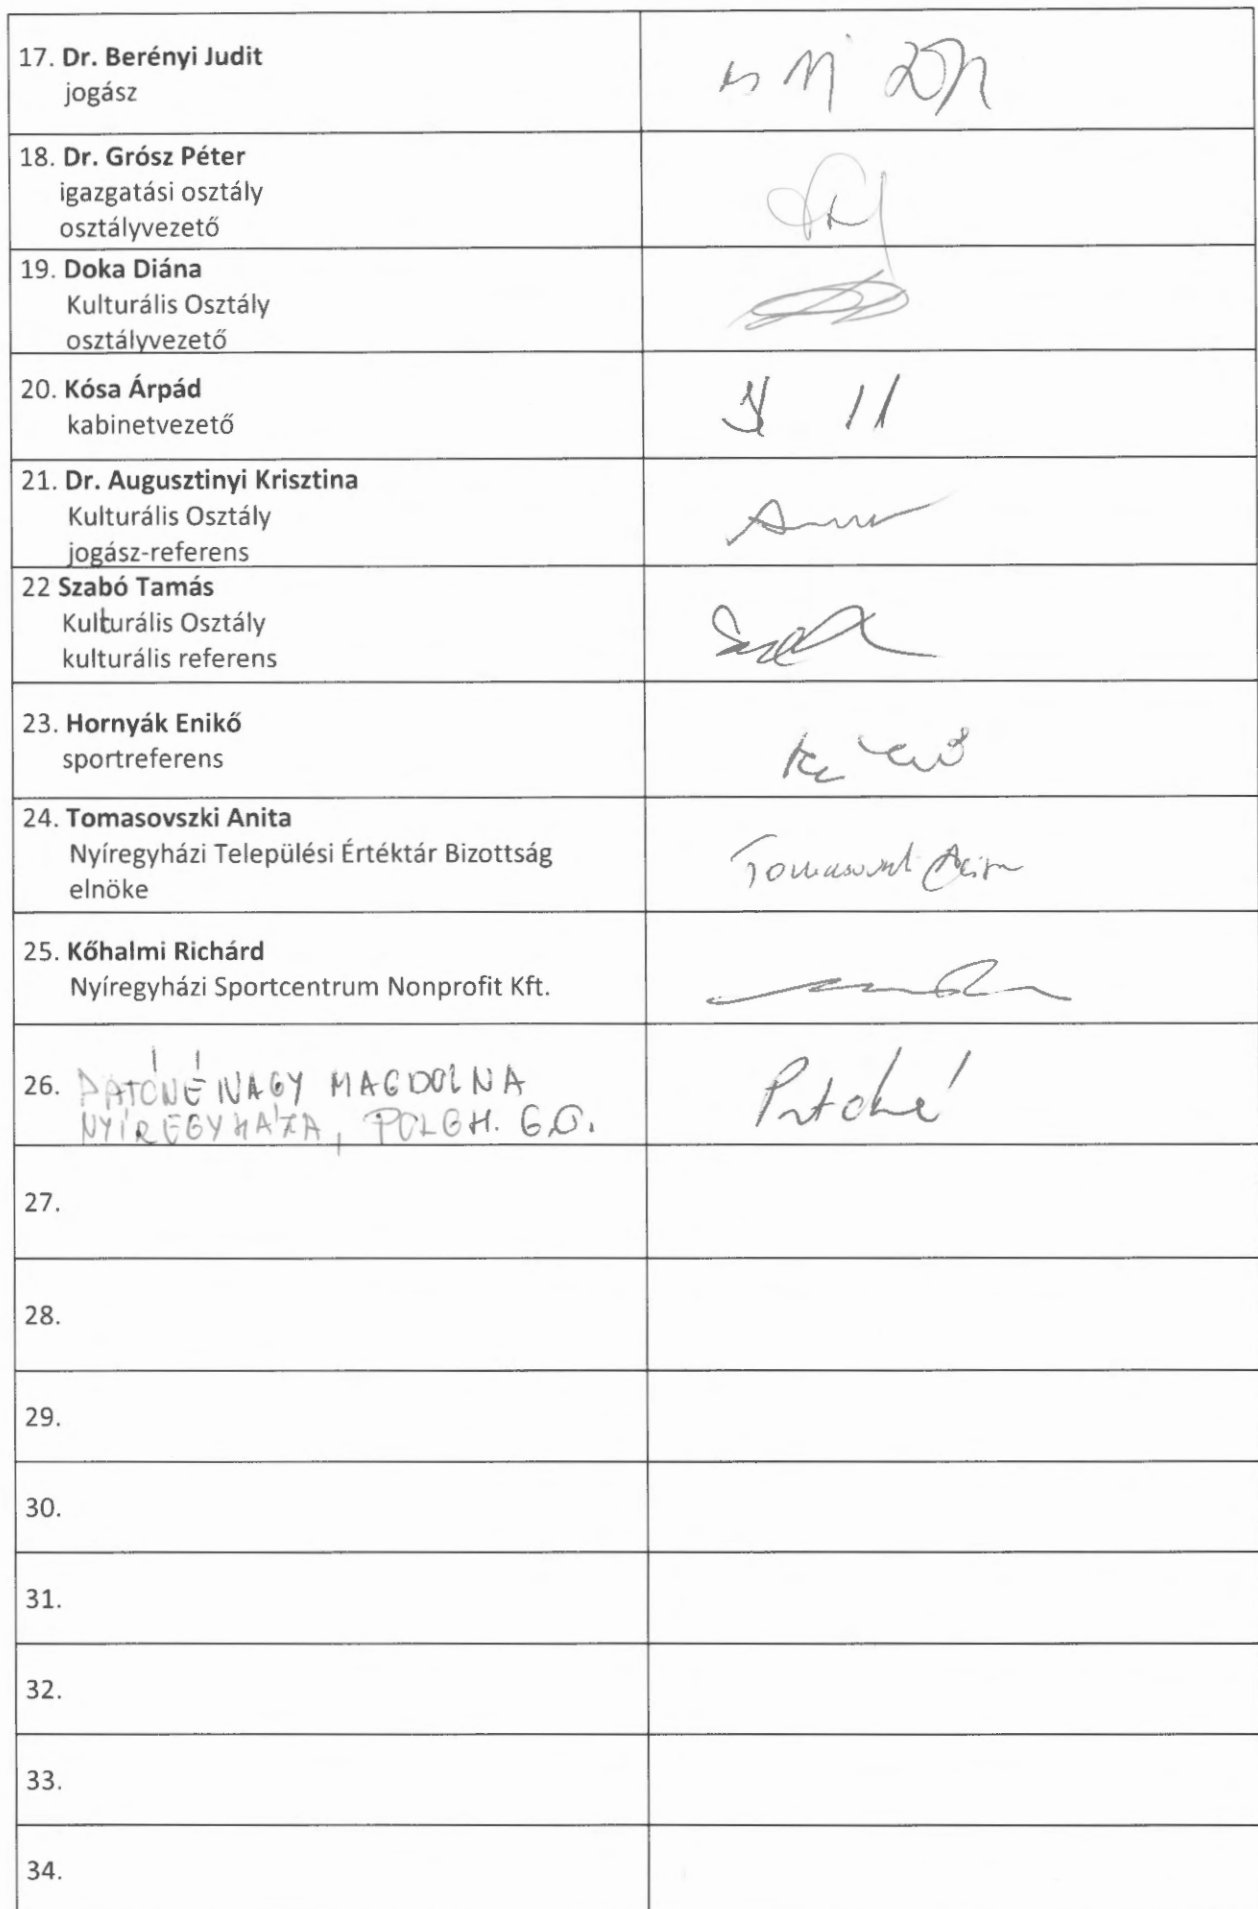 17. Dr. Berényi Judit
jogász
18. Dr. Grósz Péter
igazgatási osztály
osztályvezető
19. Doka Diána
Kulturális Osztály
osztályvezető
20. Kósa Árpád
kabinetvezető
21. Dr. Augusztinyi Krisztina
Kulturális Osztály
jogász-referens
22 Szabó Tamás
Kulturális Osztály
kulturális referens
23. Hornyák Enikő
sportreferens
24. Tomasovszki Anita
Nyíregyházi Települési Értéktár Bizottság
elnöke
25. Kőhalmi Richárd
Nyíregyházi Sportcentrum Nonprofit Kft.
26. PATÓNÉ NAGY MAGDOLNA
NYÍREGYHÁZA, POLGH. G.O.
Patóné
27.
28.
29.
30.
31.
32.
33.
34.